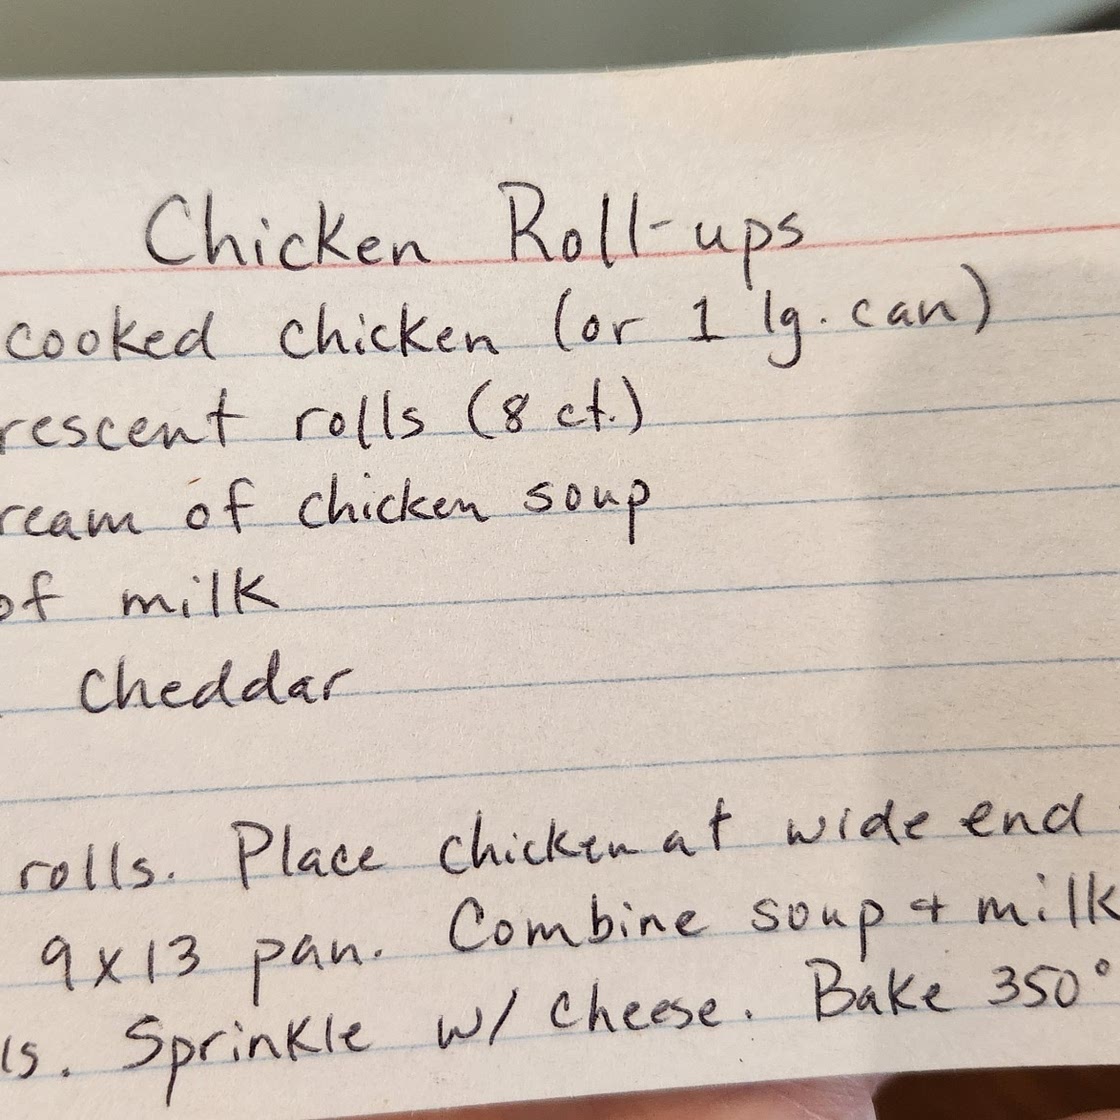 Chicken Roll-ups
cooked chicken (or 1 lg. can)
rescent rolls (8 ct.)
ream of chicken soup
of milk
cheddar
rolls. Place chicken at wide end
9x13 pan. Combine soup + milk
ls. Sprinkle w/ cheese. Bake 350°